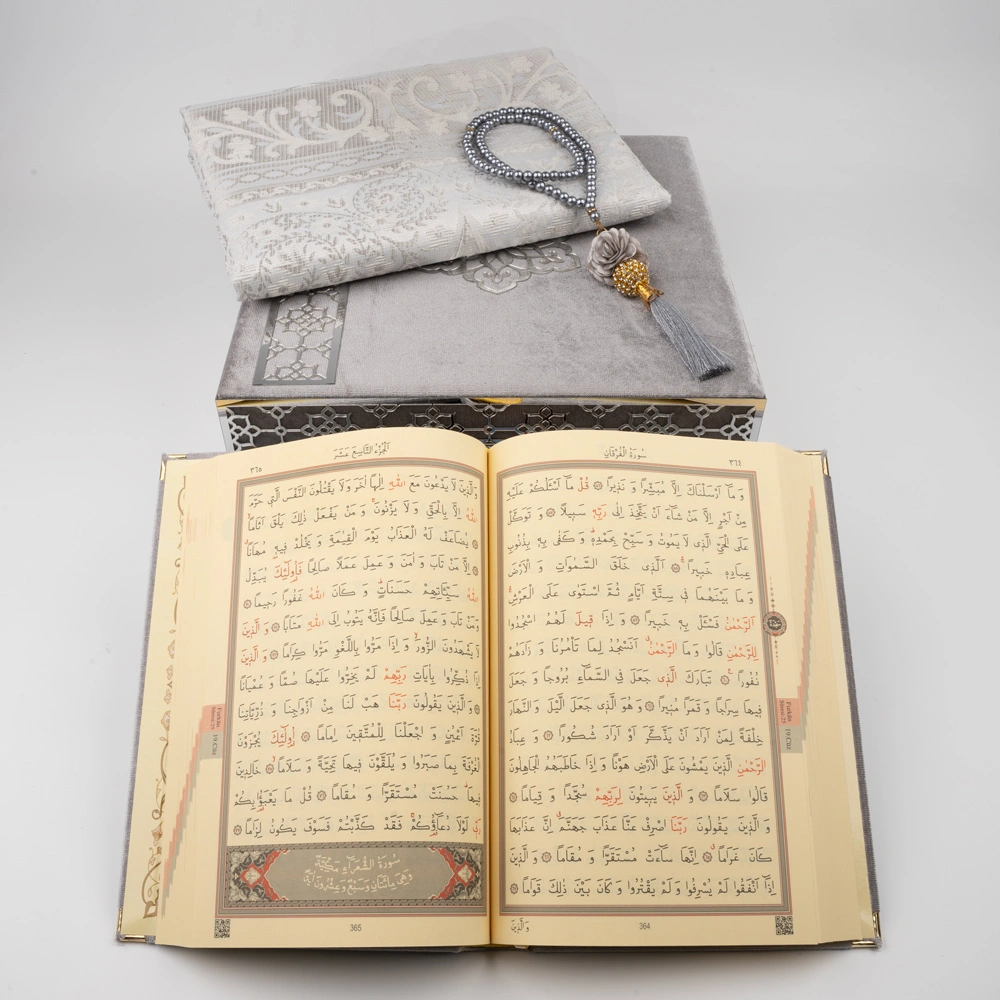 سُورَةُ الْفُرْقَانِ ٣٦٤
وَ مَٓا اَرْسَلْنَاكَ اِلَّا مُبَشِّرًا وَ نَذِيرًا ۞ قُلْ مَٓا اَسْـَٔلُكُمْ عَلَيْهِ
مِنْ اَجْرٍ اِلَّا مَنْ شَٓاءَ اَنْ يَتَّخِذَ اِلٰى رَبِّهِ سَبِيلًا ۞ وَ تَوَكَّلْ
عَلَى الْحَىِّ الَّذِى لَا يَمُوتُ وَ سَبِّحْ بِحَمْدِهِ وَ كَفٰى بِهِ بِذُنُوبِ
عِبَادِهِ خَبِيرًا ۞ اَلَّذِى خَلَقَ السَّمٰوَاتِ وَ الْاَرْضَ
وَ مَا بَيْنَهُمَا فِى سِتَّةِ اَيَّامٍ ثُمَّ اسْتَوٰى عَلَى الْعَرْشِ
اَلرَّحْمٰنُ فَسْـَٔلْ بِهِ خَبِيرًا ۞ وَ اِذَا قِيلَ لَهُمُ اسْجُدُوا
لِلرَّحْمٰنِ قَالُوا وَ مَا الرَّحْمٰنُ اَنَسْجُدُ لِمَا تَأْمُرُنَا وَ زَادَهُمْ
نُفُورًا ۞ تَبَارَكَ الَّذِى جَعَلَ فِى السَّمَٓاءِ بُرُوجًا وَ جَعَلَ
فِيهَا سِرَاجًا وَ قَمَرًا مُنِيرًا ۞ وَ هُوَ الَّذِى جَعَلَ الَّيْلَ وَ النَّهَارَ
خِلْفَةً لِمَنْ اَرَادَ اَنْ يَذَّكَّرَ اَوْ اَرَادَ شُكُورًا ۞ وَ عِبَادُ
الرَّحْمٰنِ الَّذِينَ يَمْشُونَ عَلَى الْاَرْضِ هَوْنًا وَ اِذَا خَاطَبَهُمُ الْجَاهِلُونَ
قَالُوا سَلَامًا ۞ وَ الَّذِينَ يَبِيتُونَ لِرَبِّهِمْ سُجَّدًا وَ قِيَامًا ۞
وَ الَّذِينَ يَقُولُونَ رَبَّنَا اصْرِفْ عَنَّا عَذَابَ جَهَنَّمَ اِنَّ عَذَابَهَا
كَانَ غَرَامًا ۞ اِنَّهَا سَٓاءَتْ مُسْتَقَرًّا وَ مُقَامًا ۞ وَ الَّذِينَ
اِذَٓا اَنْفَقُوا لَمْ يُسْرِفُوا وَ لَمْ يَقْتُرُوا وَ كَانَ بَيْنَ ذٰلِكَ قَوَامًا ۞
وَ الَّذِينَ
364
Furkân
Sûresi 25
19.Cüz
اَلْجُزْءُ التَّاسِعَ عَشَرَ ٣٦٥
وَ الَّذِينَ لَا يَدْعُونَ مَعَ اللّٰهِ اِلٰهًا اٰخَرَ وَ لَا يَقْتُلُونَ النَّفْسَ الَّتِى حَرَّمَ
اللّٰهُ اِلَّا بِالْحَقِّ وَ لَا يَزْنُونَ وَ مَنْ يَفْعَلْ ذٰلِكَ يَلْقَ اَثَامًا
۞ يُضَاعَفْ لَهُ الْعَذَابُ يَوْمَ الْقِيٰمَةِ وَ يَخْلُدْ فِيهِ مُهَانًا
۞ اِلَّا مَنْ تَابَ وَ اٰمَنَ وَ عَمِلَ عَمَلًا صَالِحًا فَاُولٰٓئِكَ يُبَدِّلُ
اللّٰهُ سَيِّـَٔاتِهِمْ حَسَنَاتٍ وَ كَانَ اللّٰهُ غَفُورًا رَحِيمًا ۞
وَ مَنْ تَابَ وَ عَمِلَ صَالِحًا فَاِنَّهُ يَتُوبُ اِلَى اللّٰهِ مَتَابًا ۞ وَ الَّذِينَ
لَا يَشْهَدُونَ الزُّورَ وَ اِذَا مَرُّوا بِاللَّغْوِ مَرُّوا كِرَامًا ۞ وَ الَّذِينَ
اِذَا ذُكِّرُوا بِاٰيَاتِ رَبِّهِمْ لَمْ يَخِرُّوا عَلَيْهَا صُمًّا وَ عُمْيَانًا
۞ وَ الَّذِينَ يَقُولُونَ رَبَّنَا هَبْ لَنَا مِنْ اَزْوَاجِنَا وَ ذُرِّيَّاتِنَا
قُرَّةَ اَعْيُنٍ وَ اجْعَلْنَا لِلْمُتَّقِينَ اِمَامًا ۞ اُولٰٓئِكَ يُجْزَوْنَ
الْغُرْفَةَ بِمَا صَبَرُوا وَ يُلَقَّوْنَ فِيهَا تَحِيَّةً وَ سَلَامًا ۞ خَالِدِينَ
فِيهَا حَسُنَتْ مُسْتَقَرًّا وَ مُقَامًا ۞ قُلْ مَا يَعْبَؤُ۬ا بِكُمْ
رَبِّى لَوْلَا دُعَٓاؤُ۬كُمْ فَقَدْ كَذَّبْتُمْ فَسَوْفَ يَكُونُ لِزَامًا ۞
سُورَةُ الشُّعَرَٓاءِ مَكِّيَّةٌ
وَ هِىَ مِائَتَانِ وَ سَبْعٌ وَ عِشْرُونَ اٰيَةً
365
Furkân
Sûresi 25
19.Cüz